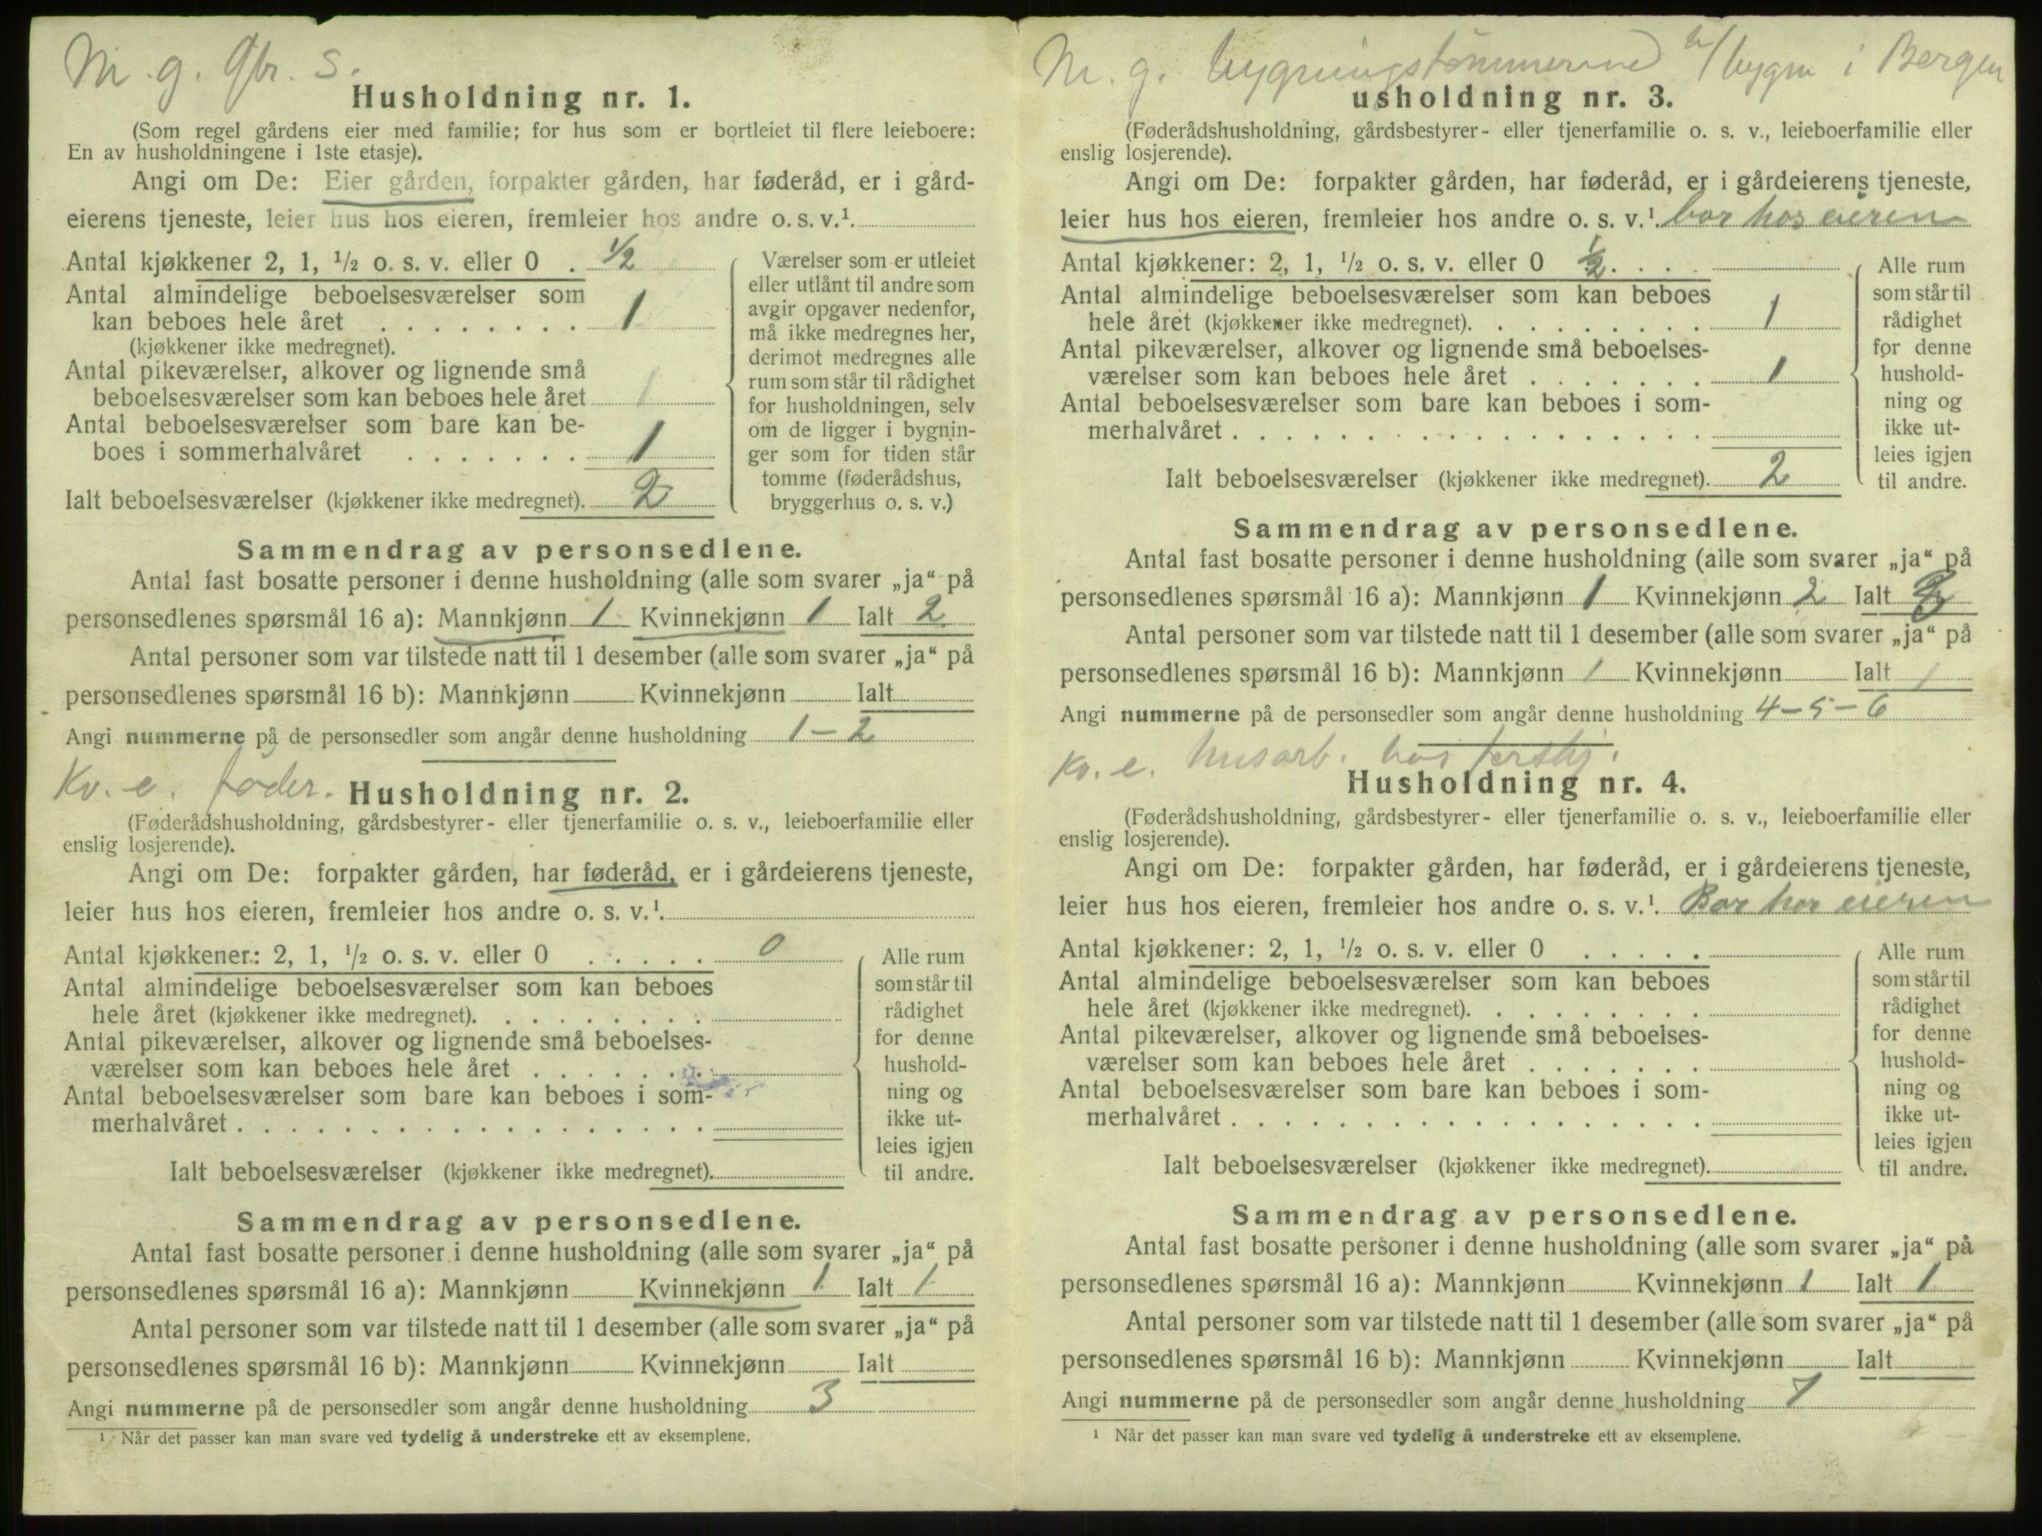 M. g. gbr. s.
Husholdning nr. 1.
(Som regel gårdens eier med familie; for hus som er bortleiet til flere leieboere:
En av husholdningene i 1ste etasje).
Angi om De: Eier gården, forpakter gården, har føderåd, er i gård-
eierens tjeneste, leier hus hos eieren, fremleier hos andre o. s. v.¹.
Antal kjøkkener 2, 1, ½ o. s. v. eller 0 . ½
Antal almindelige beboelsesværelser som
kan beboes hele året . . . . . . . . 1
(kjøkkener ikke medregnet).
Antal pikeværelser, alkover og lignende små
beboelsesværelser som kan beboes hele året 1
Antal beboelsesværelser som bare kan be-
boes i sommerhalvåret . . . . . . . 1
Ialt beboelsesværelser (kjøkkener ikke medregnet). 2
Værelser som er utleiet
eller utlånt til andre som
avgir opgaver nedenfor,
må ikke medregnes her,
derimot medregnes alle
rum som står til rådighet
for husholdningen, selv
om de ligger i bygnin-
ger som for tiden står
tomme (føderådshus,
bryggerhus o. s. v.)
Sammendrag av personsedlene.
Antal fast bosatte personer i denne husholdning (alle som svarer „ja“ på
personsedlenes spørsmål 16 a): Mannkjønn 1 Kvinnekjønn 1 Ialt 2
Antal personer som var tilstede natt til 1 desember (alle som svarer „ja“ på
personsedlenes spørsmål 16 b): Mannkjønn Kvinnekjønn Ialt
Angi nummerne på de personsedler som angår denne husholdning 1-2
Kv. e. føder.
Husholdning nr. 2.
(Føderådshusholdning, gårdsbestyrer- eller tjenerfamilie o. s. v., leieboerfamilie eller
enslig losjerende).
Angi om De: forpakter gården, har føderåd, er i gårdeierens tjeneste,
leier hus hos eieren, fremleier hos andre o. s. v.¹.
Antal kjøkkener: 2, 1, ½ o. s. v. eller 0 . . . . . 0
Antal almindelige beboelsesværelser som kan beboes
hele året (kjøkkener ikke medregnet). . . . . . . . .
Antal pikeværelser, alkover og lignende små beboelses-
værelser som kan beboes hele året . . . . . . .
Antal beboelsesværelser som bare kan beboes i som-
merhalvåret . . . . . . . . . . . . . . . . . .
Ialt beboelsesværelser (kjøkkener ikke medregnet).
Alle rum
som står til
rådighet
for denne
hushold-
ning og
ikke ut-
leies igjen
til andre.
Sammendrag av personsedlene.
Antal fast bosatte personer i denne husholdning (alle som svarer „ja“ på
personsedlenes spørsmål 16 a): Mannkjønn Kvinnekjønn 1 Ialt 1
Antal personer som var tilstede natt til 1 desember (alle som svarer „ja“ på
personsedlenes spørsmål 16 b): Mannkjønn Kvinnekjønn Ialt
Angi nummerne på de personsedler som angår denne husholdning 3
¹ Når det passer kan man svare ved tydelig å understreke ett av eksemplene.
M. g. bygningstømmermand v/ bygn i Bergen
usholdning nr. 3.
(Føderådshusholdning, gårdsbestyrer- eller tjenerfamilie o. s. v., leieboerfamilie eller
enslig losjerende).
Angi om De: forpakter gården, har føderåd, er i gårdeierens tjeneste,
leier hus hos eieren, fremleier hos andre o. s. v.¹. bor hos eieren
Antal kjøkkener: 2, 1, ½ o. s. v. eller 0 ½ . . .
Antal almindelige beboelsesværelser som kan beboes
hele året (kjøkkener ikke medregnet). . . . . . . . . 1
Antal pikeværelser, alkover og lignende små beboelses-
værelser som kan beboes hele året . . . . . . . 1
Antal beboelsesværelser som bare kan beboes i som-
merhalvåret . . . . . . . . . . . . . . . . . .
Ialt beboelsesværelser (kjøkkener ikke medregnet). 2
Alle rum
som står til
rådighet
for denne
hushold-
ning og
ikke ut-
leies igjen
til andre.
Sammendrag av personsedlene.
Antal fast bosatte personer i denne husholdning (alle som svarer „ja“ på
personsedlenes spørsmål 16 a): Mannkjønn 1 Kvinnekjønn 2 Ialt
Antal personer som var tilstede natt til 1 desember (alle som svarer „ja“ på
personsedlenes spørsmål 16 b): Mannkjønn 1 Kvinnekjønn Ialt 1
Angi nummerne på de personsedler som angår denne husholdning 4-5-6
Kv. e. husarb. hos
Husholdning nr. 4.
(Føderådshusholdning, gårdsbestyrer- eller tjenerfamilie o. s. v., leieboerfamilie eller
enslig losjerende).
Angi om De: forpakter gården, har føderåd, er i gårdeierens tjeneste,
leier hus hos eieren, fremleier hos andre o. s. v.¹. Bor hos eieren
Antal kjøkkener: 2, 1, ½ o. s. v. eller 0 . . . . .
Antal almindelige beboelsesværelser som kan beboes
hele året (kjøkkener ikke medregnet). . . . . . . . .
Antal pikeværelser, alkover og lignende små beboelses-
værelser som kan beboes hele året . . . . . . .
Antal beboelsesværelser som bare kan beboes i som-
merhalvåret . . . . . . . . . . . . . . . . . .
Ialt beboelsesværelser (kjøkkener ikke medregnet).
Alle rum
som står til
rådighet
for denne
hushold-
ning og
ikke ut-
leies igjen
til andre.
Sammendrag av personsedlene.
Antal fast bosatte personer i denne husholdning (alle som svarer „ja“ på
personsedlenes spørsmål 16 a): Mannkjønn Kvinnekjønn 1 Ialt 1
Antal personer som var tilstede natt til 1 desember (alle som svarer „ja“ på
personsedlenes spørsmål 16 b): Mannkjønn Kvinnekjønn Ialt
Angi nummerne på de personsedler som angår denne husholdning 7
¹ Når det passer kan man svare ved tydelig å understreke ett av eksemplene.